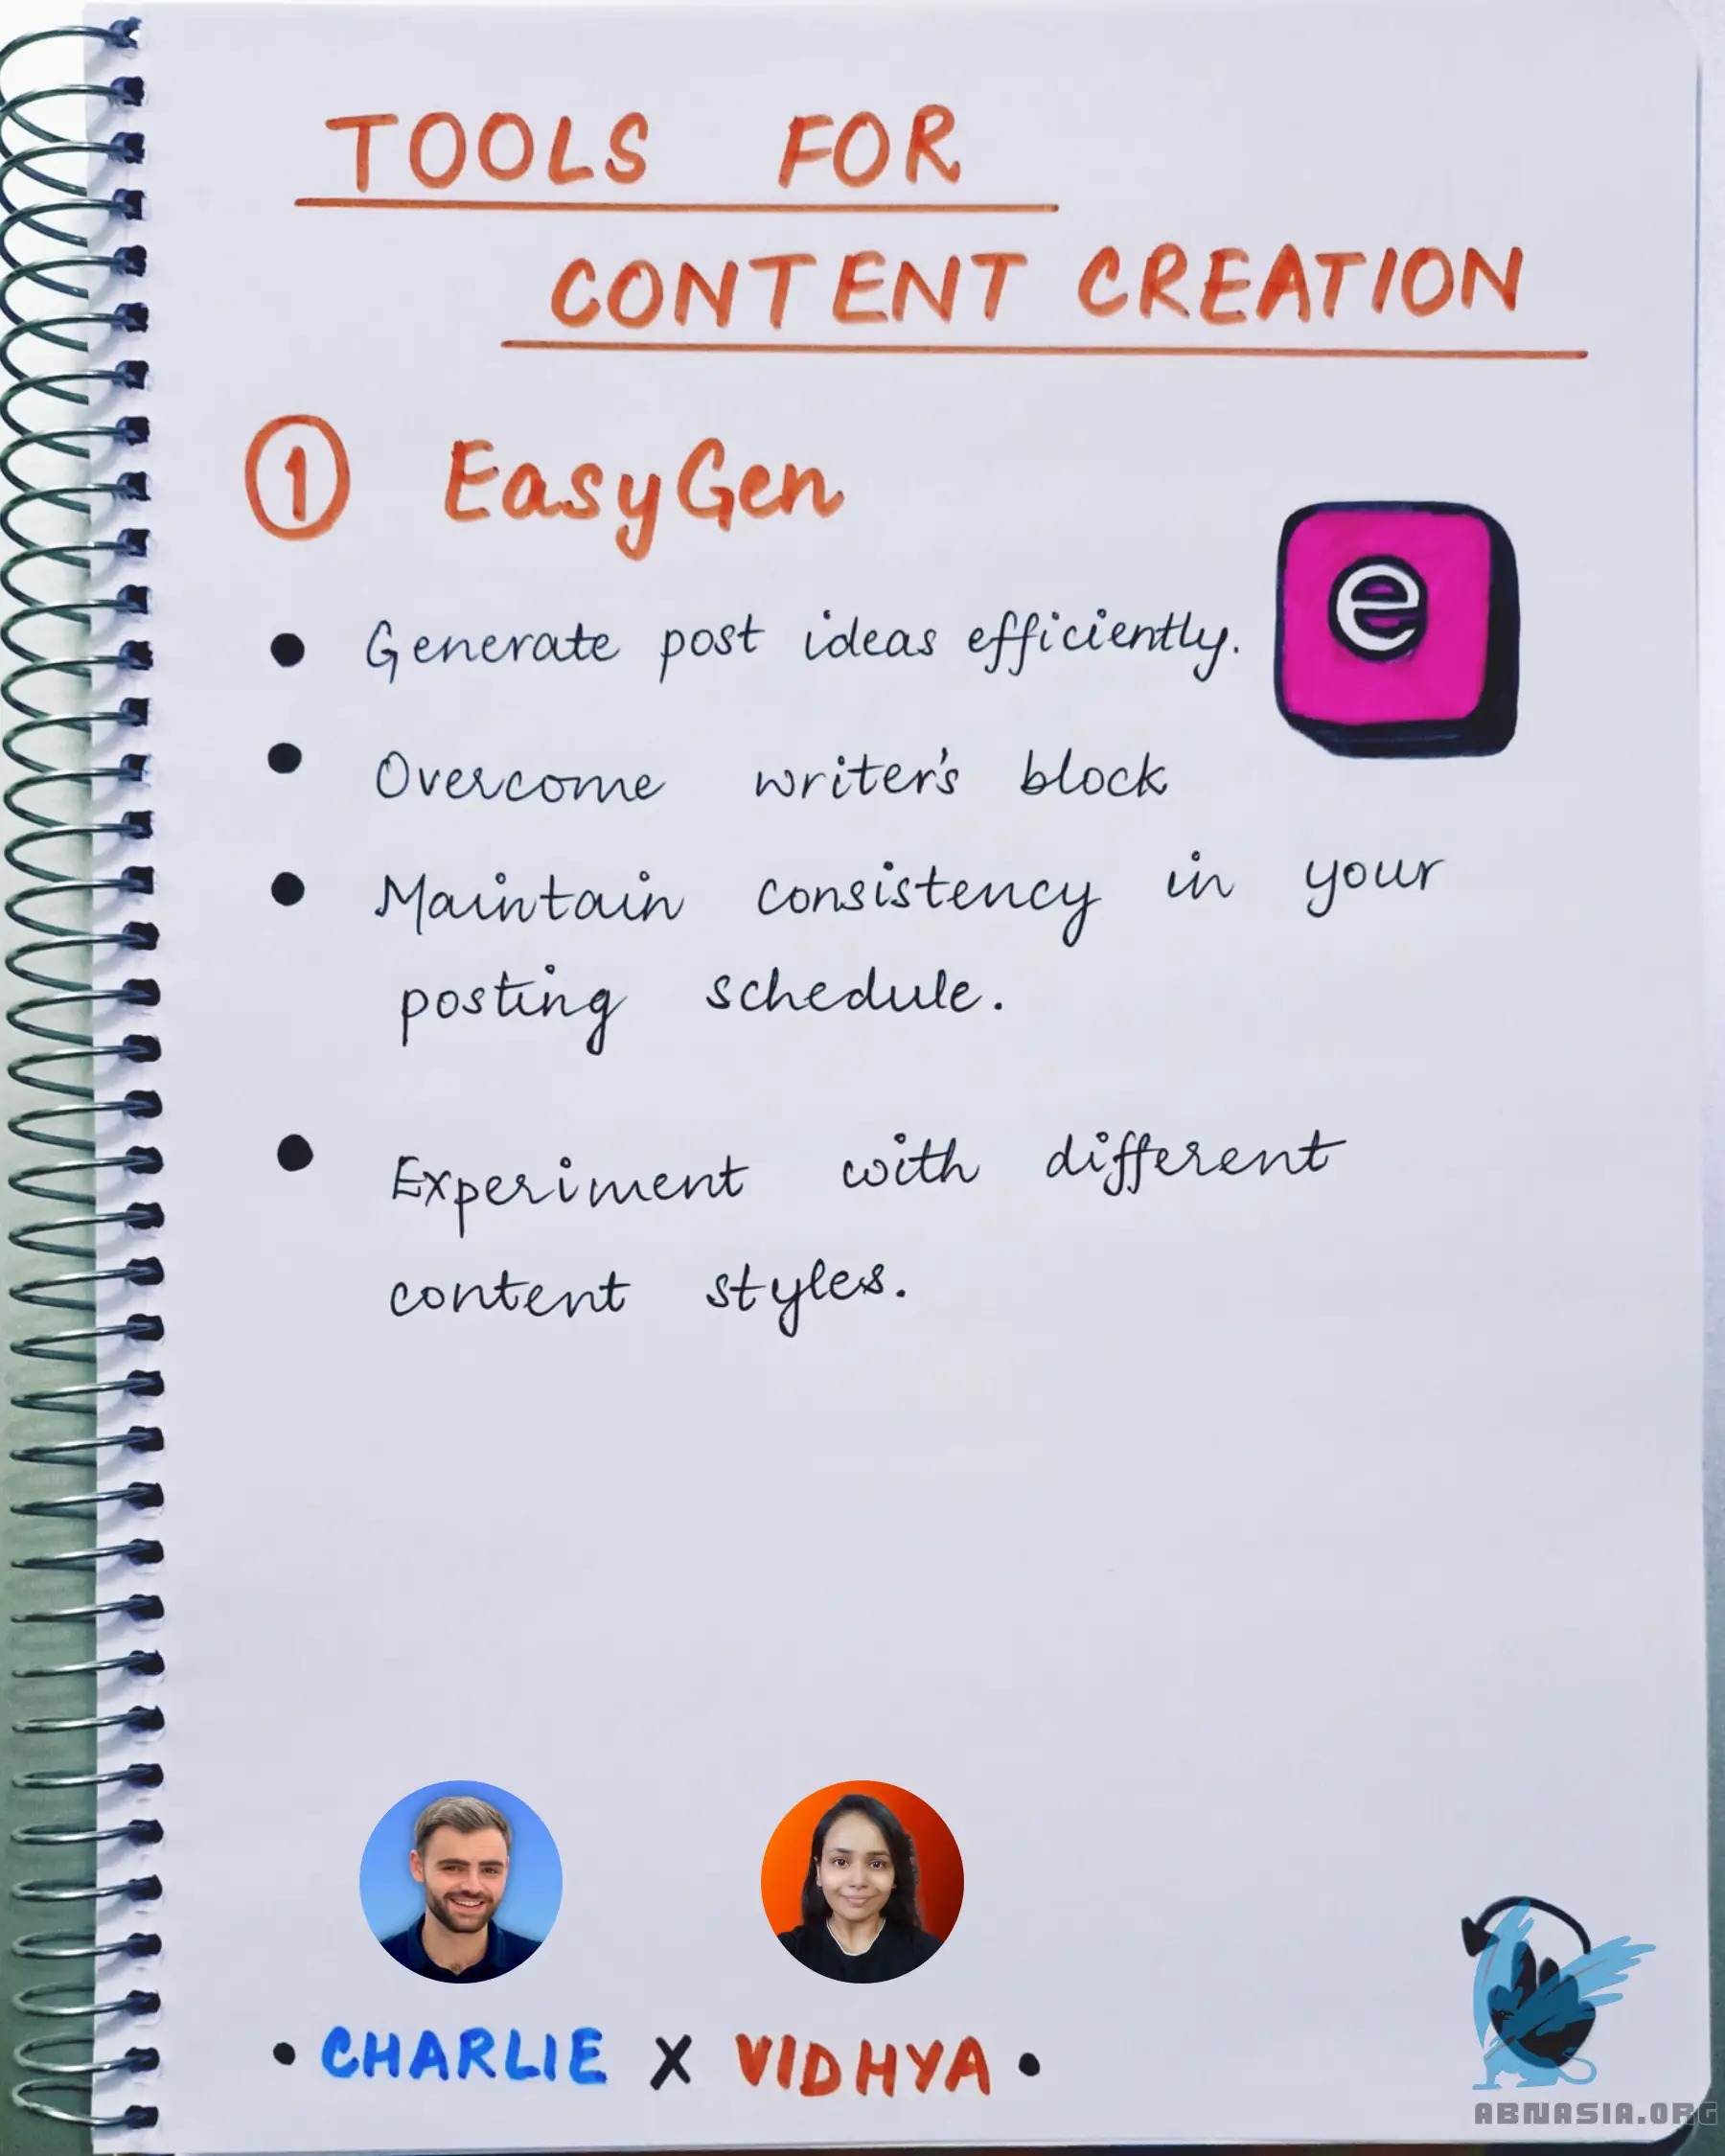 TOOLS FOR
CONTENT CREATION
1 EasyGen
e
● Generate post ideas efficiently.
● Overcome writer's block
● Maintain consistency in your
posting schedule.
● Experiment with different
content styles.
• CHARLIE X VIDHYA •
ABNASIA.ORG